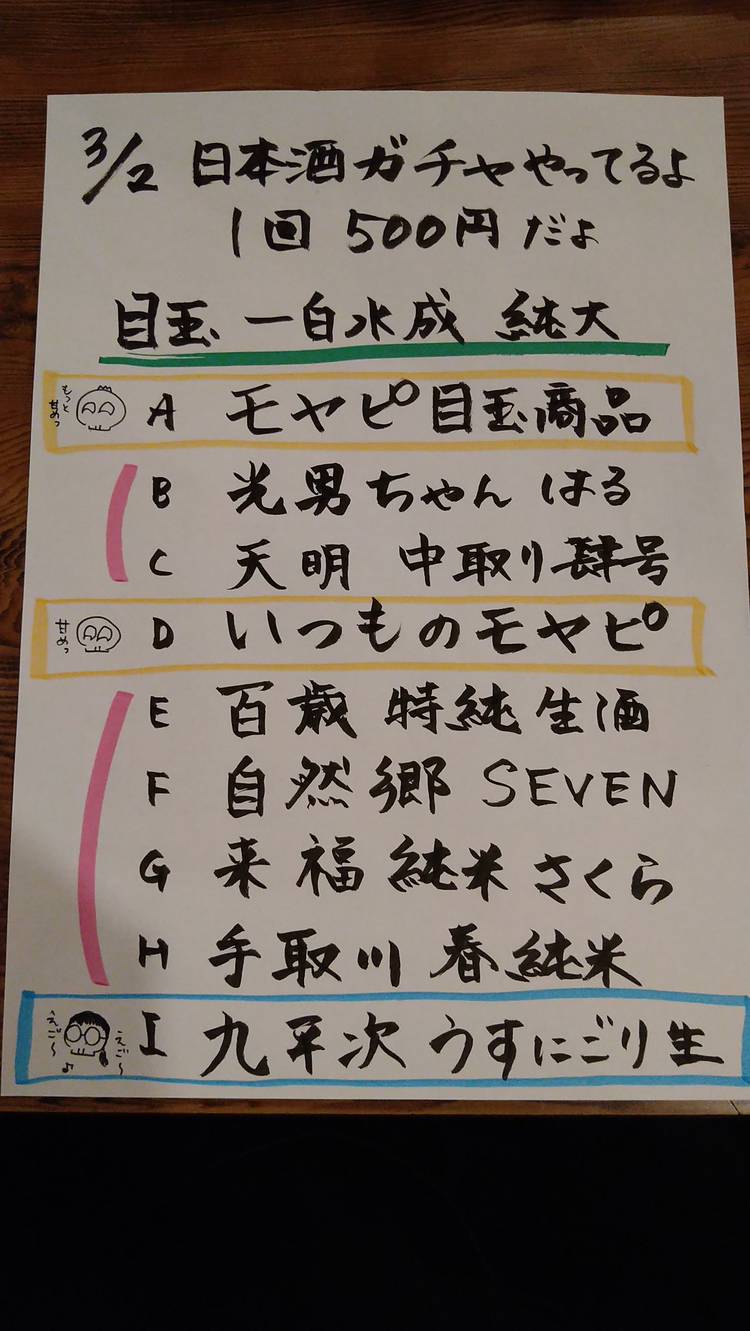 3/2 日本酒ガチャやってるよ
1回 500円だよ
目玉 一白水成 純大
もっと甘めっ
A モヤピ目玉商品
B 光男ちゃん はる
C 天明 中取り肆号
甘めっ
D いつものモヤピ
E 百歳 特純生酒
F 自然郷 SEVEN
G 来福 純米 さくら
H 手取川 春純米
えご～ えご～♪
I 九平次 うすにごり生